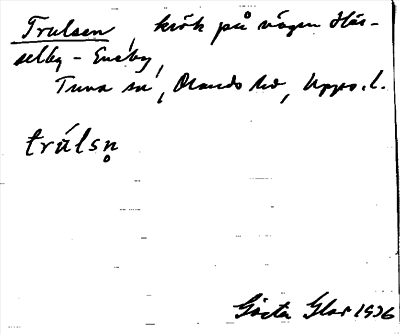 Trulsen, krök på vägen Häs-
selby - Eneby,
Tuna sn, Olands hd, Upps. l.
trúlsn̥
Gösta Glas 1936